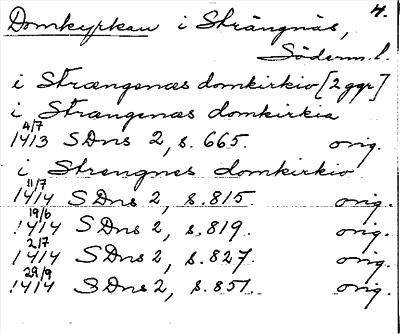 4.
Domkyrkan i Strängnäs,
Söderm. l.
i Strængenæs domkirkio [2 ggr]
i Strangenæs domkirkia
4/7
1413 SDns 2, s. 665. orig.
i Strengnes domkirkio
11/7
1414 SDns 2, s. 815. orig.
19/6
1414 SDns 2, s. 819. orig.
2/7
1414 SDns 2, s. 827. orig.
29/9
1414 SDns 2, s. 851. orig.